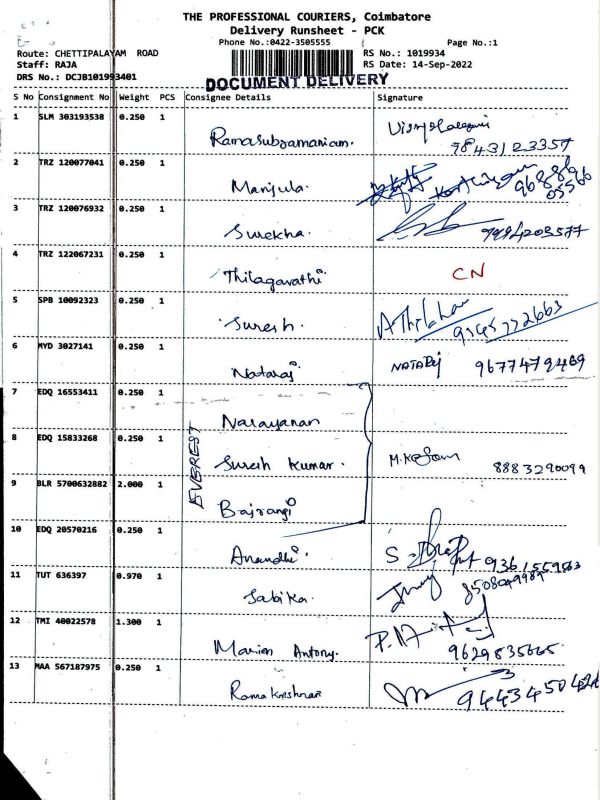 THE PROFESSIONAL COURIERS, Coimbatore
Delivery Runsheet - PCK
Phone No.:0422-3505555 Page No.:1
Route: CHETTIPALAYAM ROAD RS No.: 1019934
Staff: RAJA RS Date: 14-Sep-2022
DRS No.: DCJB101993401
DOCUMENT DELIVERY
S No Consignment No Weight PCS Consignee Details Signature
1 SLM 303193538 0.250 1
Ramasubramaniam. 9843123357
2 TRZ 120077041 0.250 1
Manjula.
3 TRZ 120076932 0.250 1
Surekha.
4 TRZ 122067231 0.250 1
Thilagavathi CN
5 SPB 10092323 0.250 1
Suresh.
6 MYD 3027141 0.250 1
Nataraj NATARaj 9677479469
7 EDQ 16553411 0.250 1
Narayanan
8 EDQ 15833268 0.250 1
EVEREST
Suresh Kumar. 8883290099
9 BLR 5700632882 2.000 1
Bajrangi
10 EDQ 20570216 0.250 1
Anandhi.
11 TUT 636397 0.970 1
Sabika.
12 TMI 40022578 1.300 1
Marien Antony. 9629835665
13 MAA 567187975 0.250 1
Ramakrishnan